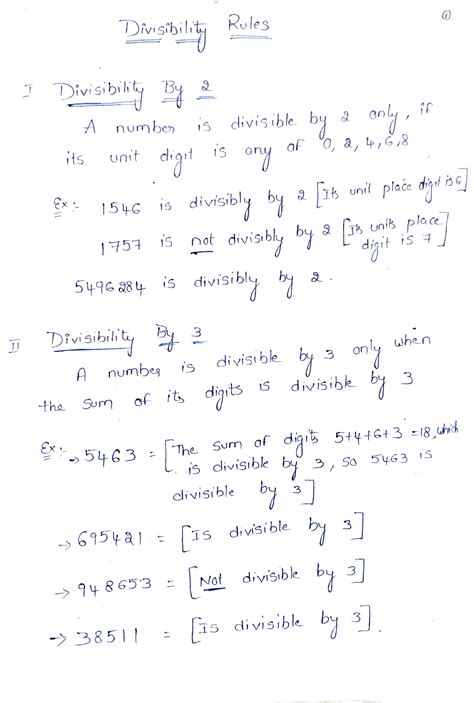 ①
Divisibility Rules
I Divisibility By 2
A number is divisible by 2 only, if
its unit digit is any of 0, 2, 4, 6, 8
Ex:- 1546 is divisibly by 2 [Its unit place digit is 6]
1757 is not divisibly by 2 [Its units place
digit is 7]
5496284 is divisibly by 2.
II Divisibility By 3
A number is divisible by 3 only when
the sum of its digits is divisible by 3
Ex:- → 5463 = [The sum of digits 5+4+6+3=18, which
is divisible by 3, so 5463 is
divisible by 3]
→ 695421 = [Is divisible by 3]
→ 948653 = [Not divisible by 3]
→ 38511 = [Is divisible by 3].